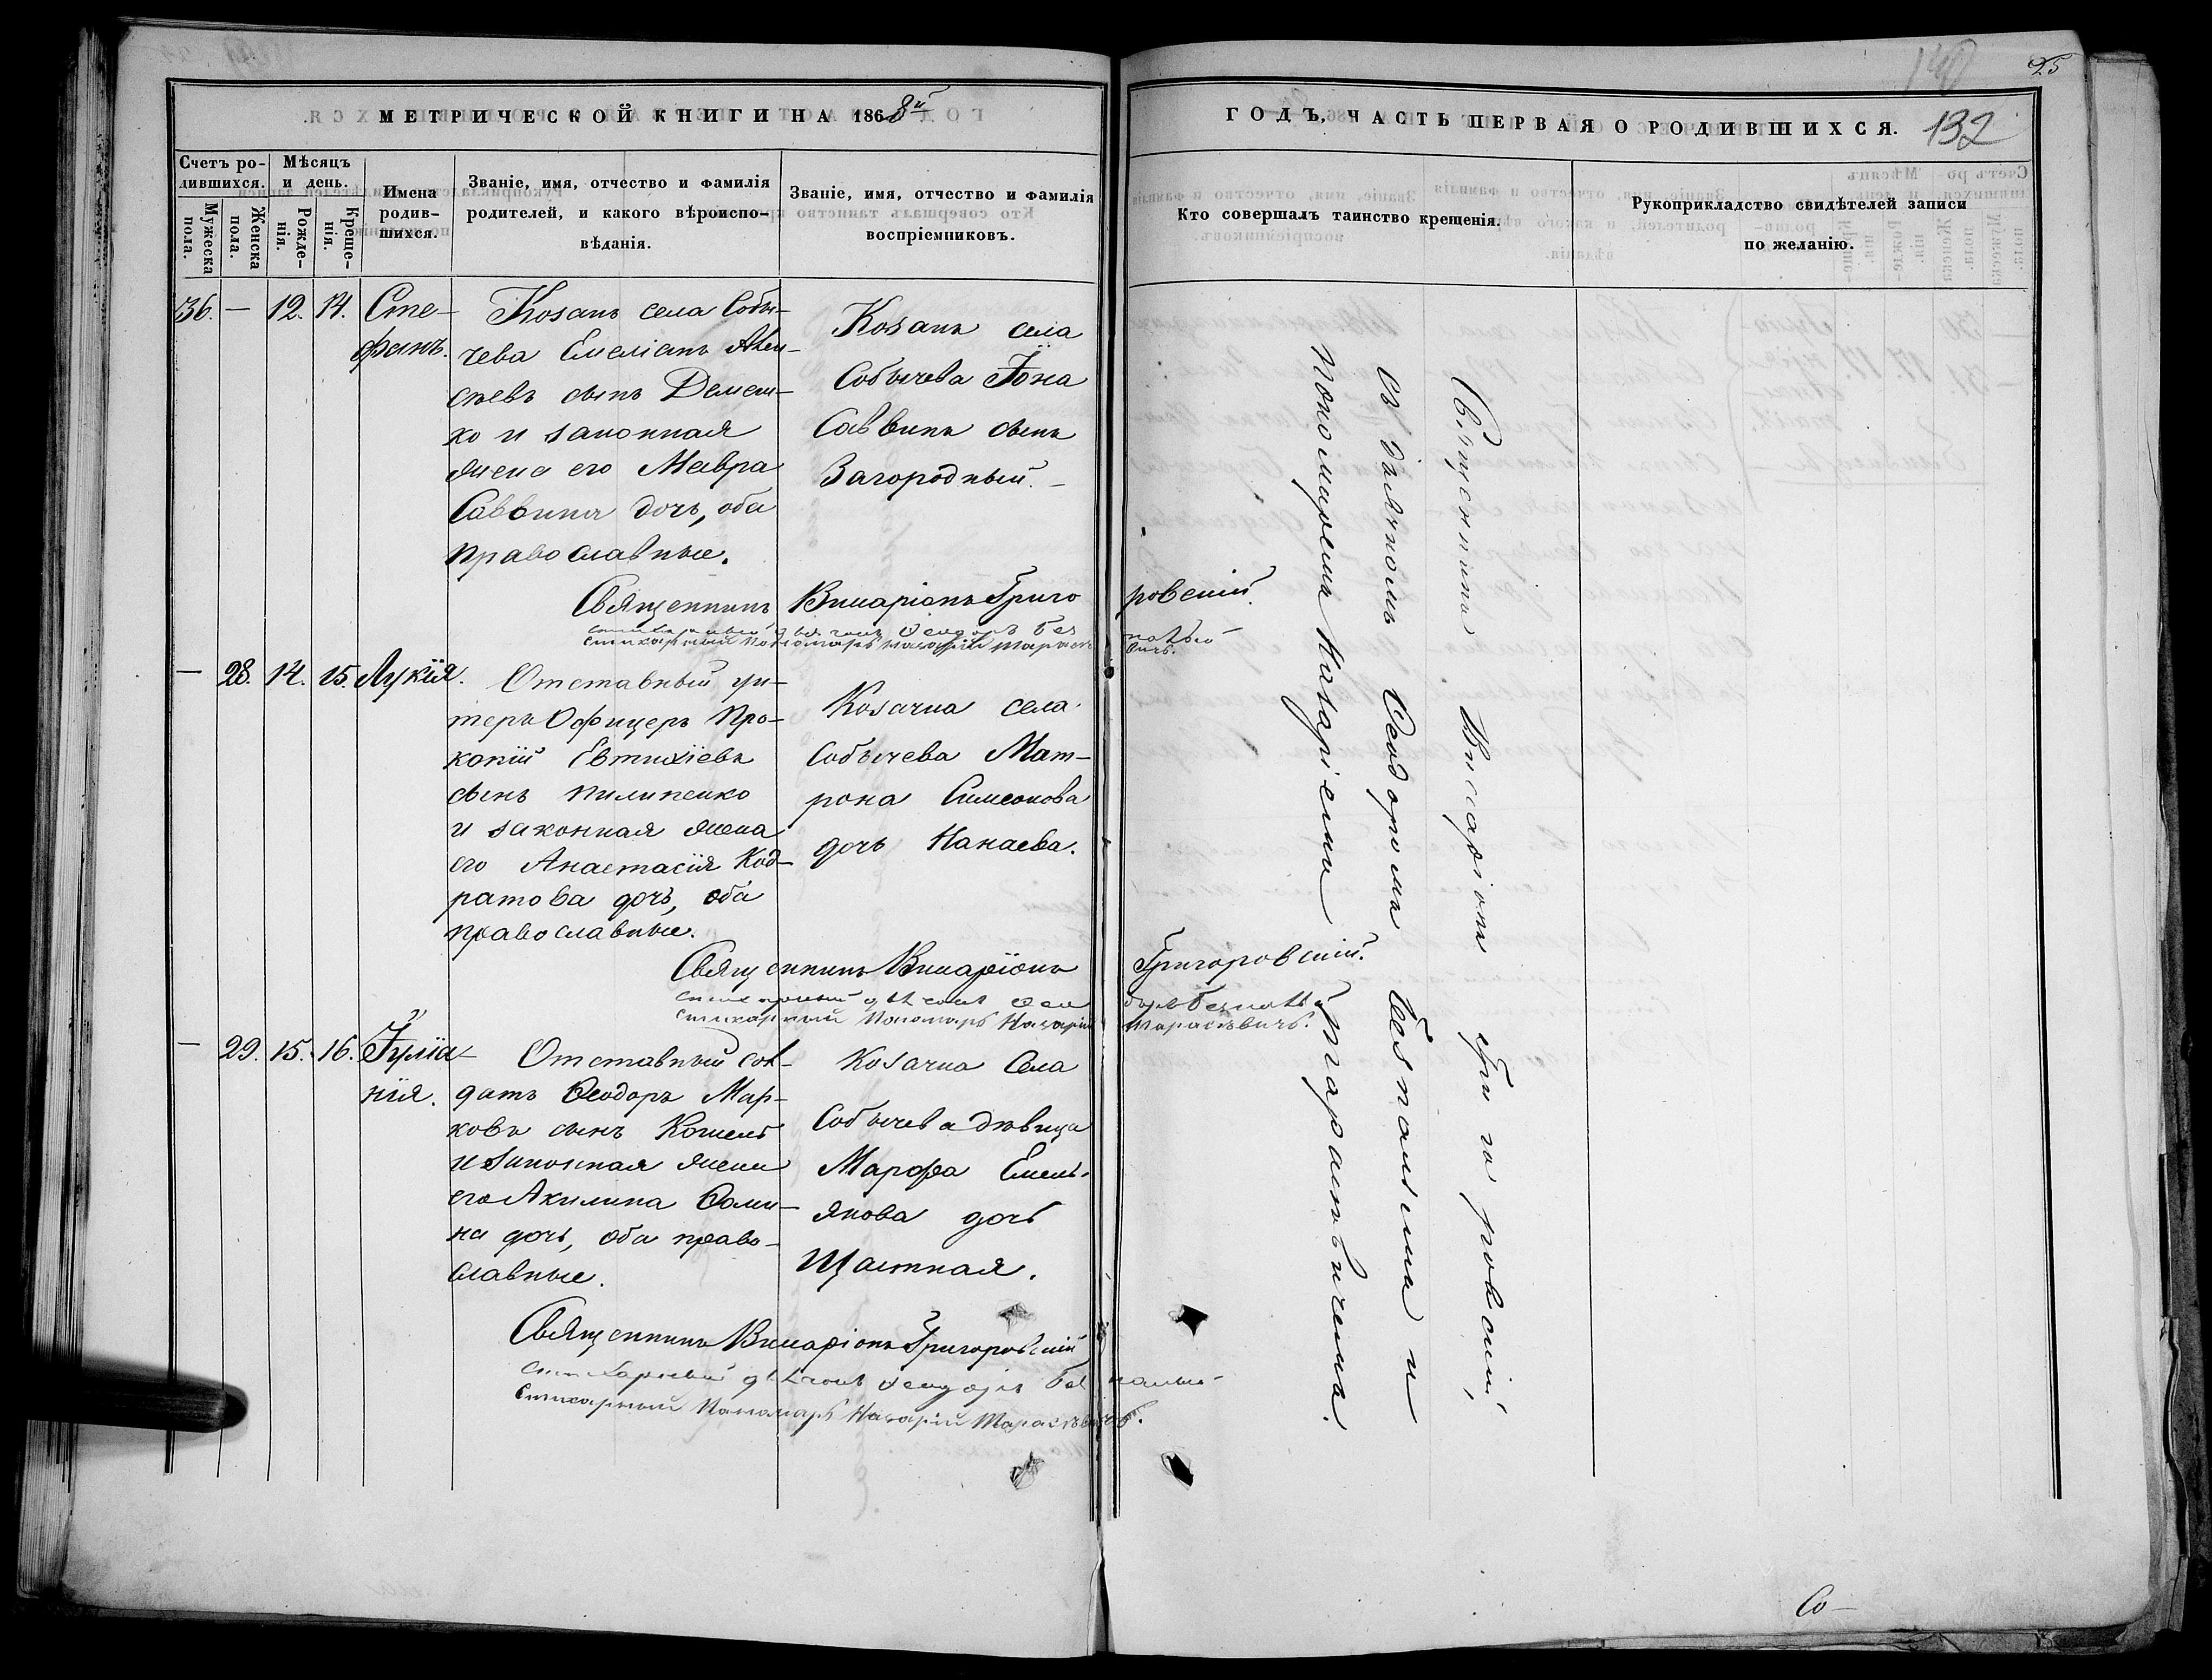 МЕТРИЧЕСКОЙ КНИГИ НА 1868й
Счетъ ро-
дившихся.
Мужеска
пола.
Женска
пола.
Мѣсяцъ
и день.
Рожде-
нія.
Креще-
нія.
Имена
родив-
шихся.
Званіе, имя, отчество и фамилія
родителей, и какого вѣроиспо-
вѣданія.
Званіе, имя, отчество и фамилія
воспріемниковъ.
36. — 12. 14. Сте-
фанъ.
Козакъ села Собы-
чева Емеліанъ
сѣевъ сынъ
ко и законная
жена его Мавра
Саввина дочь, оба
православные.
Козакъ села
Собычева Іона
Саввинъ сынъ
Загородный. —
Священникъ Висаріонъ Григоровскій.
Стихарный дьячокъ Ѳеодоръ Безпалый
Стихарный Пономарь Назарій Тарасевичъ.
— 28. 14. 15. Лукія.
Отставный ун-
теръ Офицеръ Про-
копій Евтихіевъ
сынъ Пилипенко
и законная жена
его Анастасія Код-
ратова дочь, оба
православные.
Козачка села
Собычева Мат-
рона Симеонова
дочь Нанаева.
Священникъ Висаріонъ Григоровскій.
Стихарный дьячокъ Ѳеодоръ Безпалый
Стихарный Пономарь Назарій Тарасѣвичъ.
— 29. 15. 16. Іуліа-
нія.
Отставный сол-
датъ Ѳеодоръ Мар-
ковъ сынъ Кошель
и законная жена
его Акилина Ѳоми-
на дочь, оба право-
славные.
Козачка Села
Собычева дѣвица
Марфа Емель-
янова дочь
Щастная.
Священникъ Висаріонъ Григоровскій
Стихарный дьячокъ Ѳеодоръ Безпалый
Стихарный Пономарь Назарій Тарасѣвичъ.
25
140
132
ГОДЪ, ЧАСТЬ ПЕРВАЯ О РОДИВШИХСЯ.
Кто совершалъ таинство крещенія.
Рукоприкладство свидѣтелей записи
по желанію.
Священникъ Виссаріонъ Григоровскій,
съ дьячкомъ Ѳеодоромъ Безпалымъ и
пономаремъ Назаріемъ Тарасѣвичемъ.
Со—